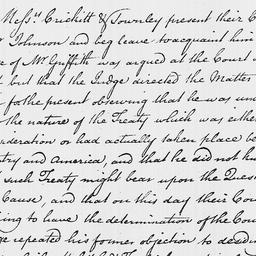 Messrs Crickitt & Townley present their C
Johnson and beg leave to acquaint him
e of Mr Griffith was argued at the Court
but that the Judge directed the Matter
for the present observing that he was un
the nature of the Treaty which was either
deration or had actually taken place be
try and America, and that he did not kn
such Treaty might bear upon the Ques
Cause, and that on this day their Cou
ing to have the determination of the Cou
ge repeated his former objection to decidi